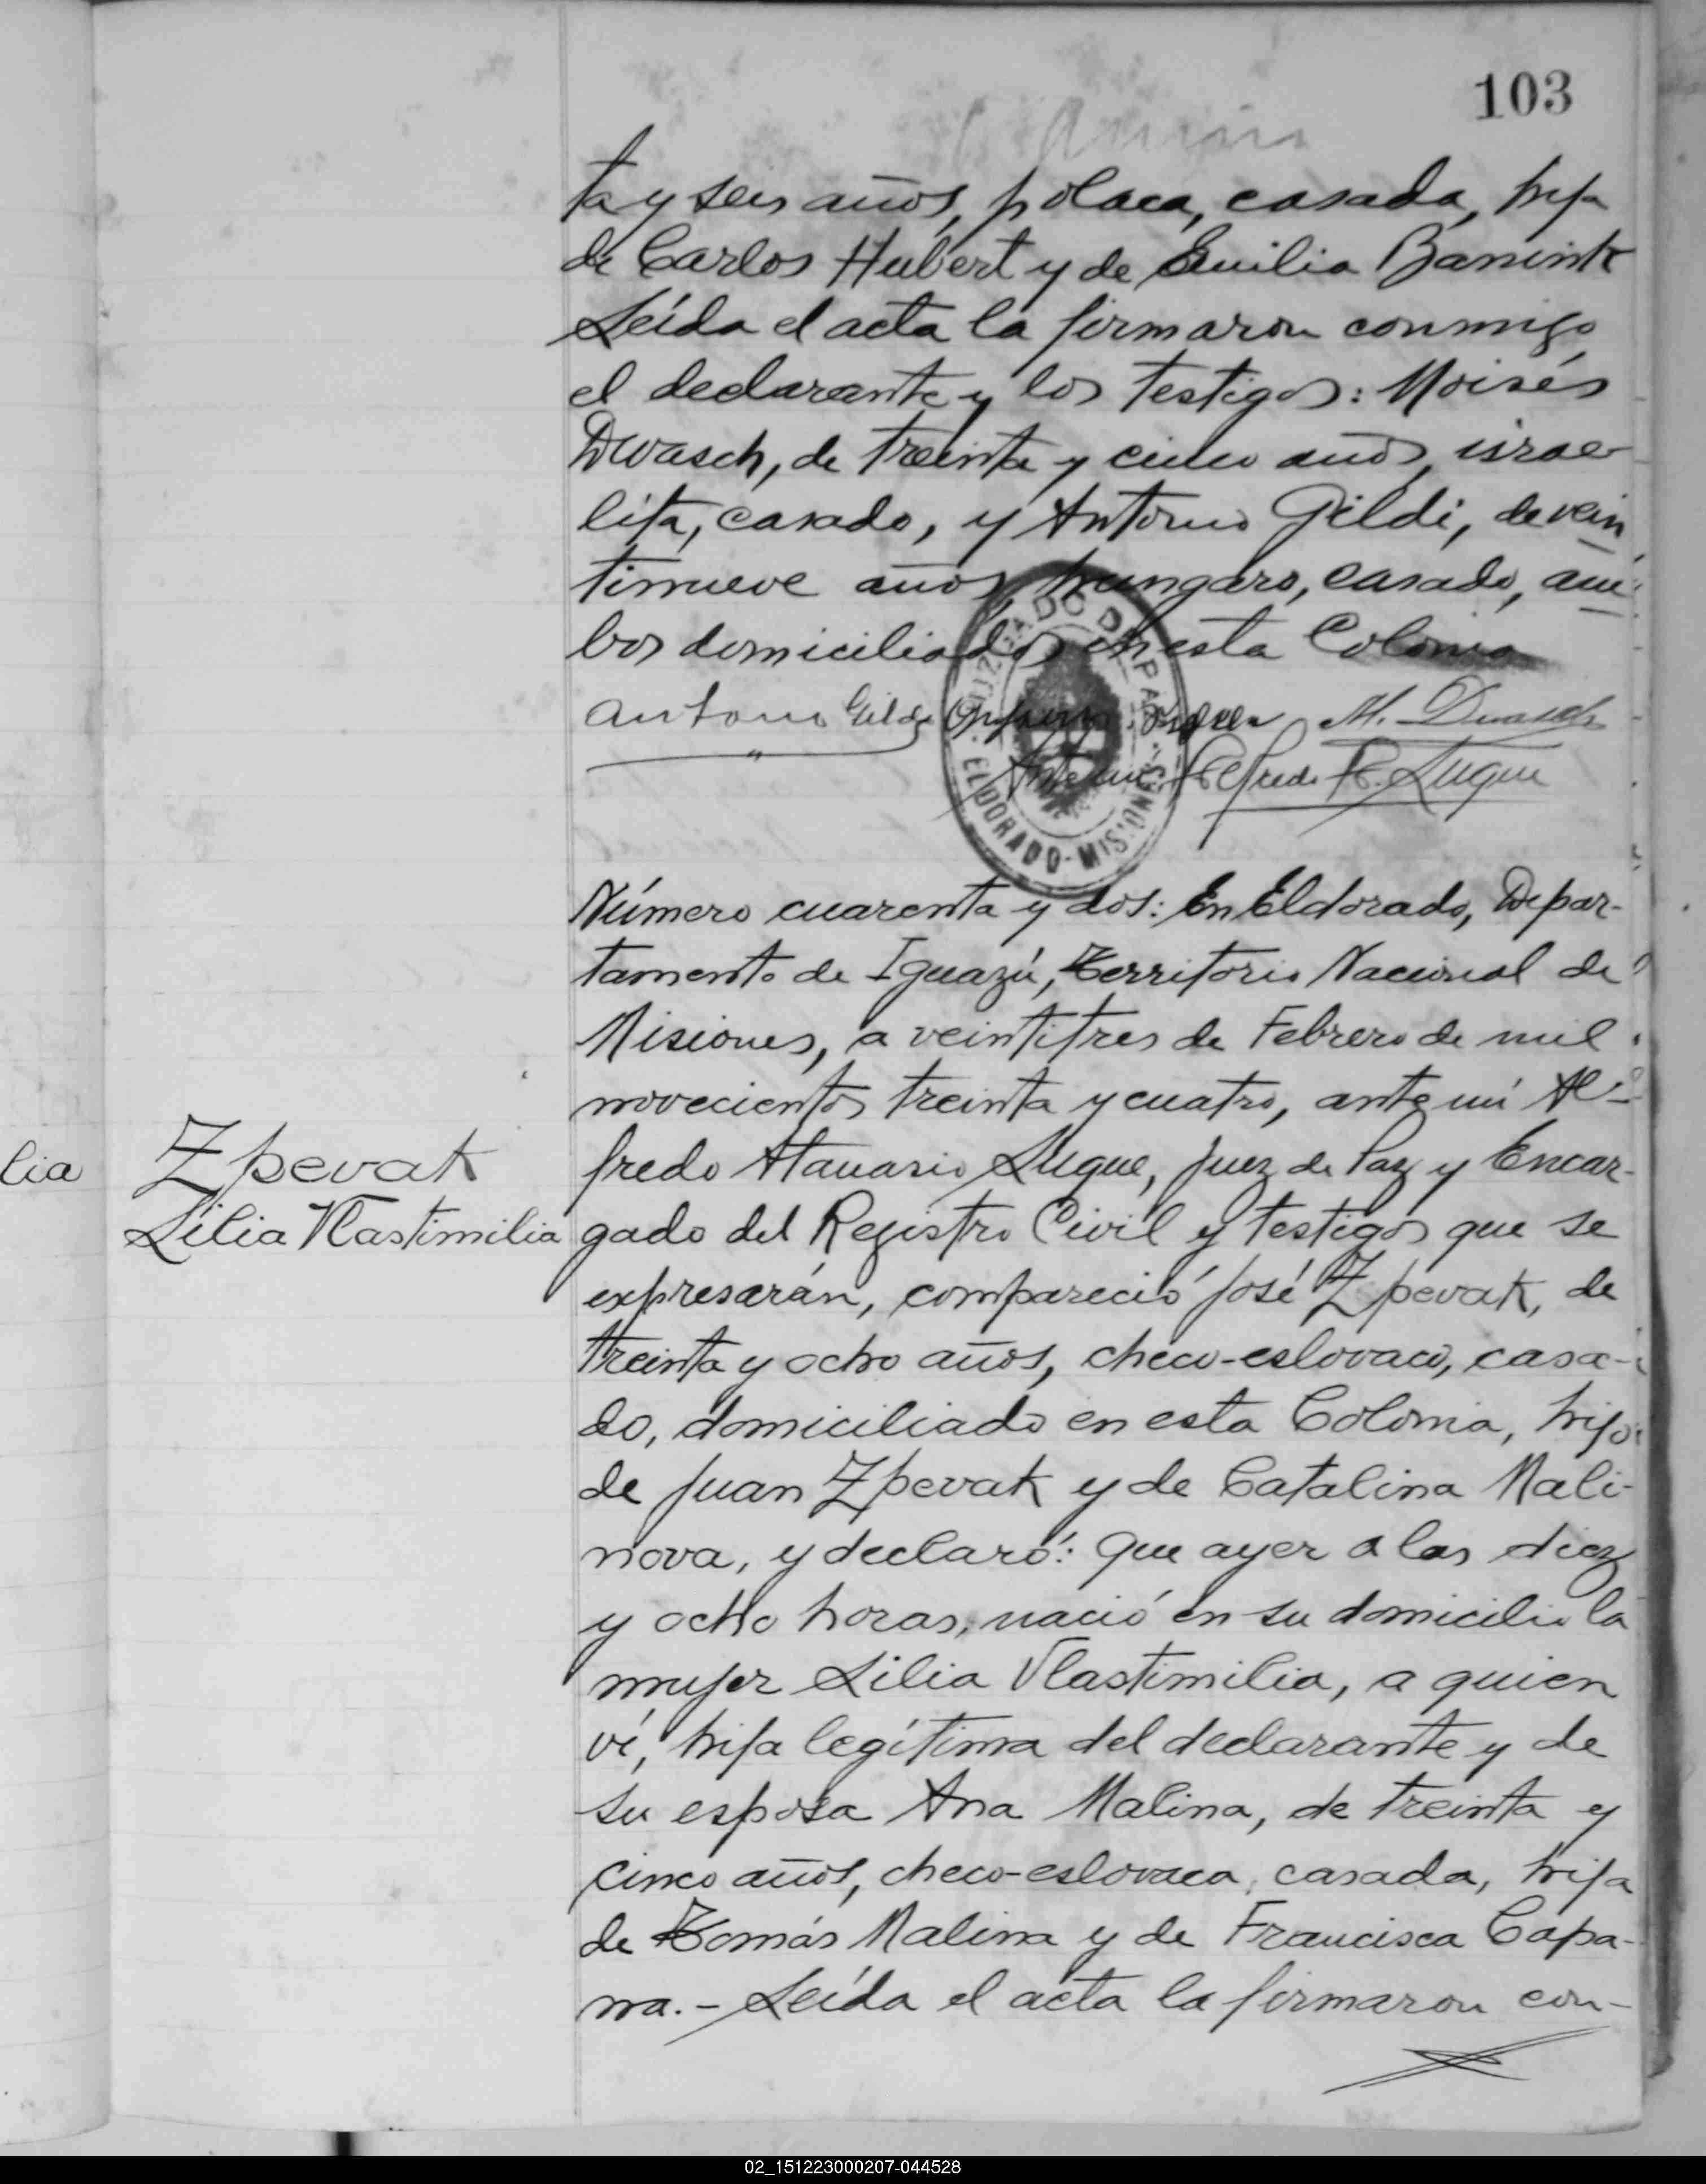 103
ta y seis años, polaca, casada, hija
de Carlos Hubert y de Emilia Banink
Leída el acta la firmaron conmigo
el declarante y los testigos: Moisés
Dwasch, de treinta y cinco años, israe-
lita, casado, y Antonio Gildi, de vein
tinueve años, hungaro, casado, am
bos domiciliados en esta Colonia
Antonio Gildi M. Dwasch
Alfredo A. Luque
JUZGADO DE PAZ
ELDORADO-MISIONES
Número cuarenta y dos: En Eldorado, Depar-
tamento de Iguazú, Territorio Nacional de
Misiones, a veintitres de Febrero de mil
novecientos treinta y cuatro, ante mí Al-
lia
Zpevak
Lilia Vlastimilia
fredo Atanasio Luque, Juez de Paz y Encar-
gado del Registro Civil y testigos que se
expresarán, compareció José Zpevak, de
treinta y ocho años, checo-eslovaco, casa-
do, domiciliado en esta Colonia, hijo
de Juan Zpevak y de Catalina Mali-
nova, y declaró: Que ayer a las diez
y ocho horas, nació en su domicilio la
mujer Lilia Vlastimilia, a quien
ví, hija legítima del declarante y de
su esposa Ana Malina, de treinta y
cinco años, checo-eslovaca, casada, hija
de Tomás Malina y de Francisca Capa-
na.- Leída el acta la firmaron con-
02_151223000207-044528